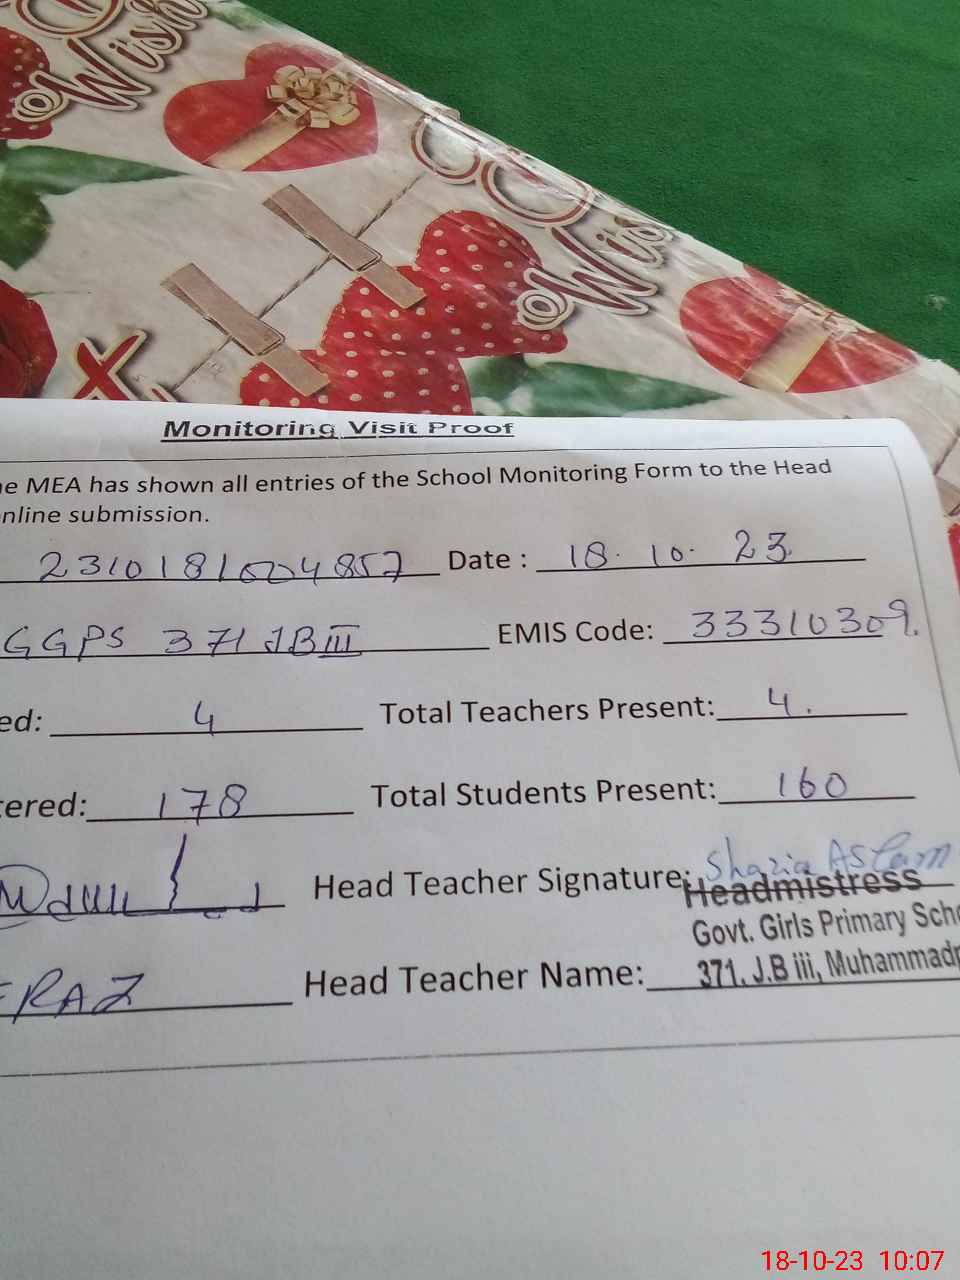 Wish
Wis
Monitoring Visit Proof
e MEA has shown all entries of the School Monitoring Form to the Head
nline submission.
2310181004857 Date : 18. 10. 23.
GGPS 371 JB III EMIS Code: 33310309.
ed: 4 Total Teachers Present: 4.
tered: 178 Total Students Present: 160
Head Teacher Signature: Shazia Aslam
Headmistress
Govt. Girls Primary Scho
ERAZ Head Teacher Name: 371. J.B iii, Muhammadp
18-10-23 10:07